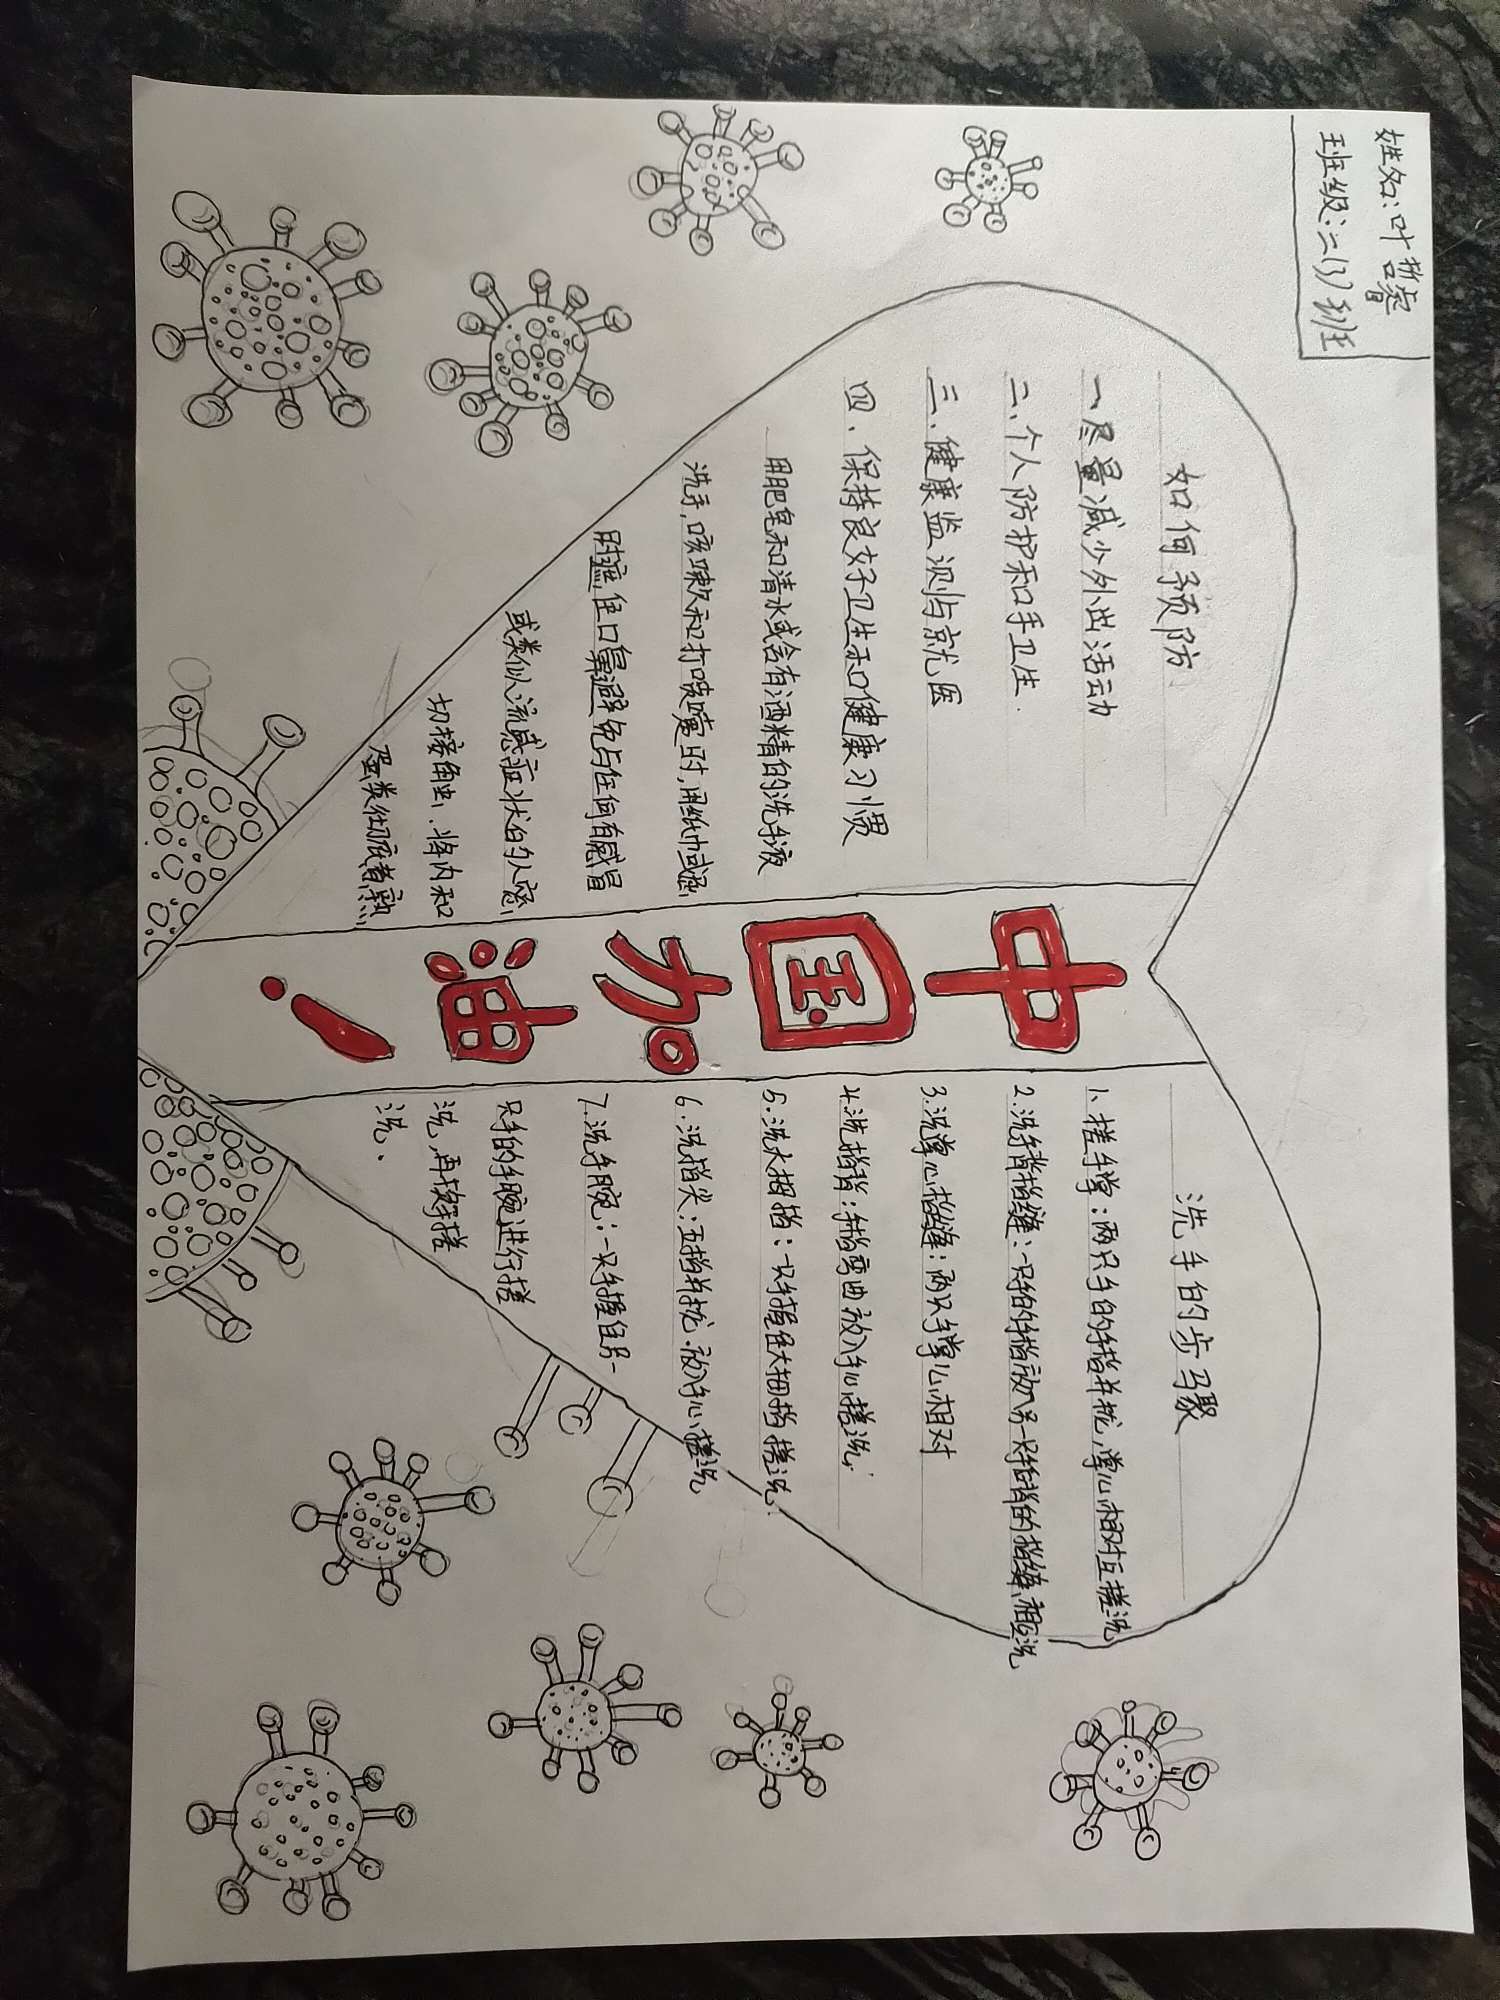 姓名：叶哲睿
班级：二(3)班
如何预防
一、尽量减少外出活动
二、个人防护和手卫生.
三、健康监测与就医
四、保持良好卫生和健康习惯
用肥皂和清水或含有酒精的洗手液
洗手，咳嗽和打喷嚏时，用纸巾或
时遮住口鼻避免与任何有感冒
或类似流感症状的人密
切接触、将肉和
蛋类彻底煮熟
中国加油！
洗手的步骤
1、搓手掌：两只手的手指并拢，掌心相对互搓洗
2.洗手背指缝：一只手的手指放入另一只手手背的指缝相互洗
3.洗掌心指缝：两只手掌心相对
4.洗指背：手指弯曲放入手心搓洗；
5.洗大拇指：一只手握住大拇指搓洗.
6.洗指尖：五指并拢.放入手心搓洗
7.洗手腕：一只手握住另一
只手的手腕进行搓
洗，再换手搓
洗.